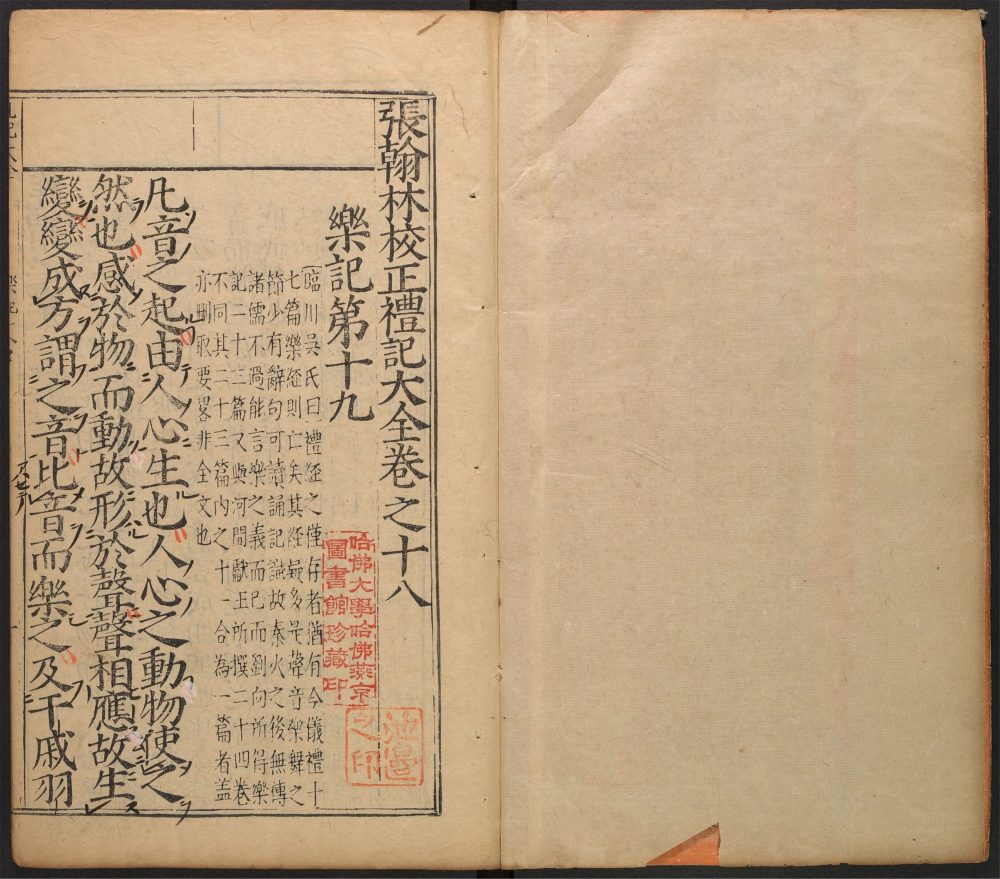 張翰林校正禮記大全卷之十八
樂記第十九
臨川吳氏曰禮經之僅存者猶有今儀禮十
七篇樂經則亡矣其經疑多是聲音樂舞之
節少有辭句可讀誦記識故秦火之後無傳
諸儒不過能言樂之義而已而劉向所得樂
記二十三篇又與河間獻王所撰二十四卷
不同其二十三篇內之十一合為一篇者蓋
亦刪取要畧非全文也
凡音之起由人心生也人心之動物使之
然也感於物而動故形於聲聲相應故生
變變成方謂之音比音而樂之及干戚羽
哈佛大學哈佛燕京
圖書館珍藏印
池邉
之印